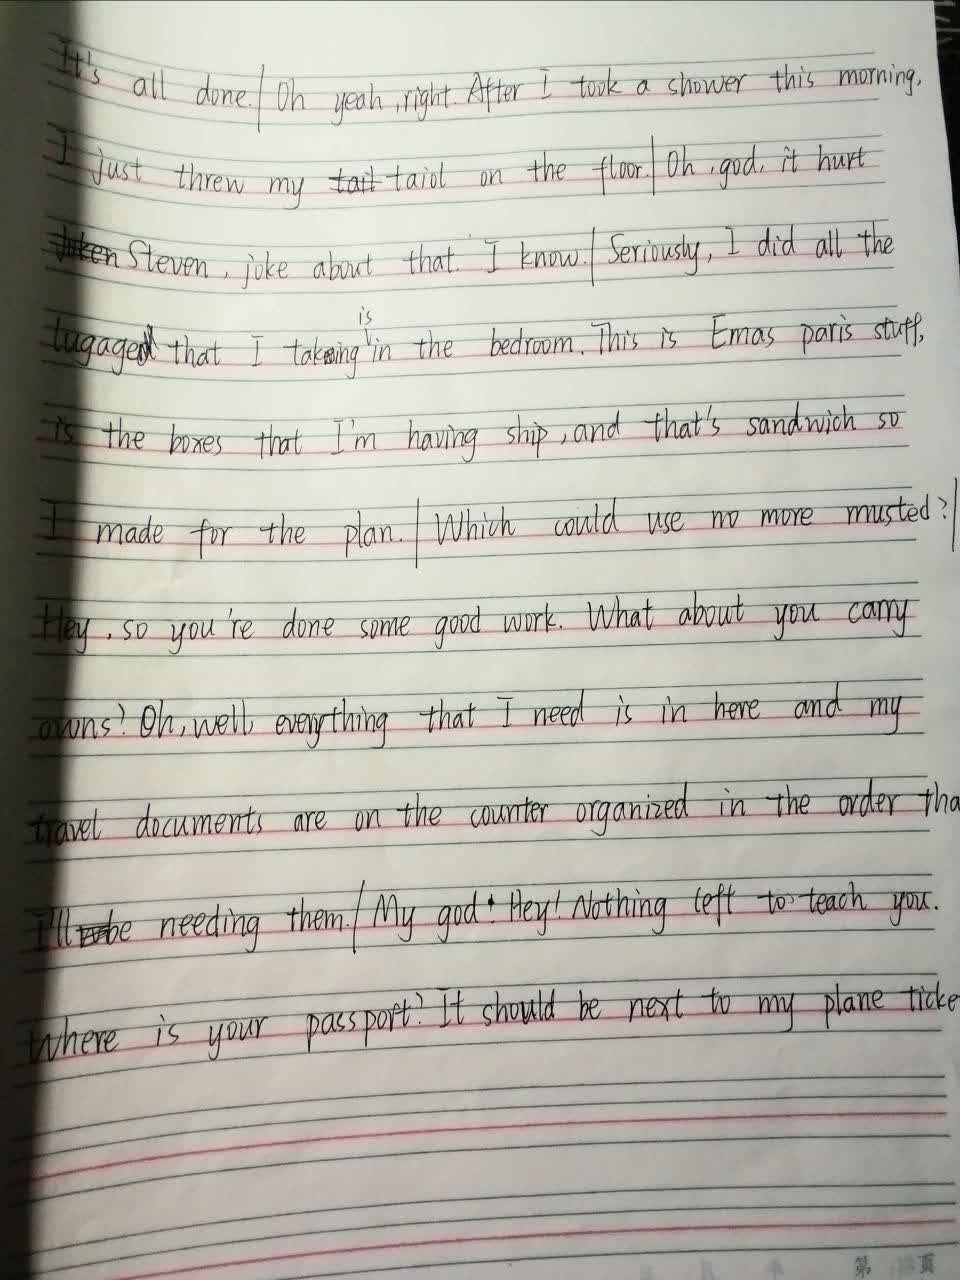 It's all done. | Oh yeah, right. After I took a shower this morning,
I just threw my taiol on the floor. | Oh, god, it hurt
Steven, joke about that. I know. | Seriously, I did all the
lugaged that I taking is in the bedroom. This is Emas paris stuff,
is the boxes that I'm having ship, and that's sandwich so
I made for the plan. | Which could use no more musted? |
Hey, so you're done some good work. What about you carry
owns? Oh, well, everything that I need is in here and my
travel documents are on the counter organized in the order tha
I'll be needing them. | My god! Hey! Nothing left to teach you.
Where is your passport? It should be next to my plane ticke
第 页